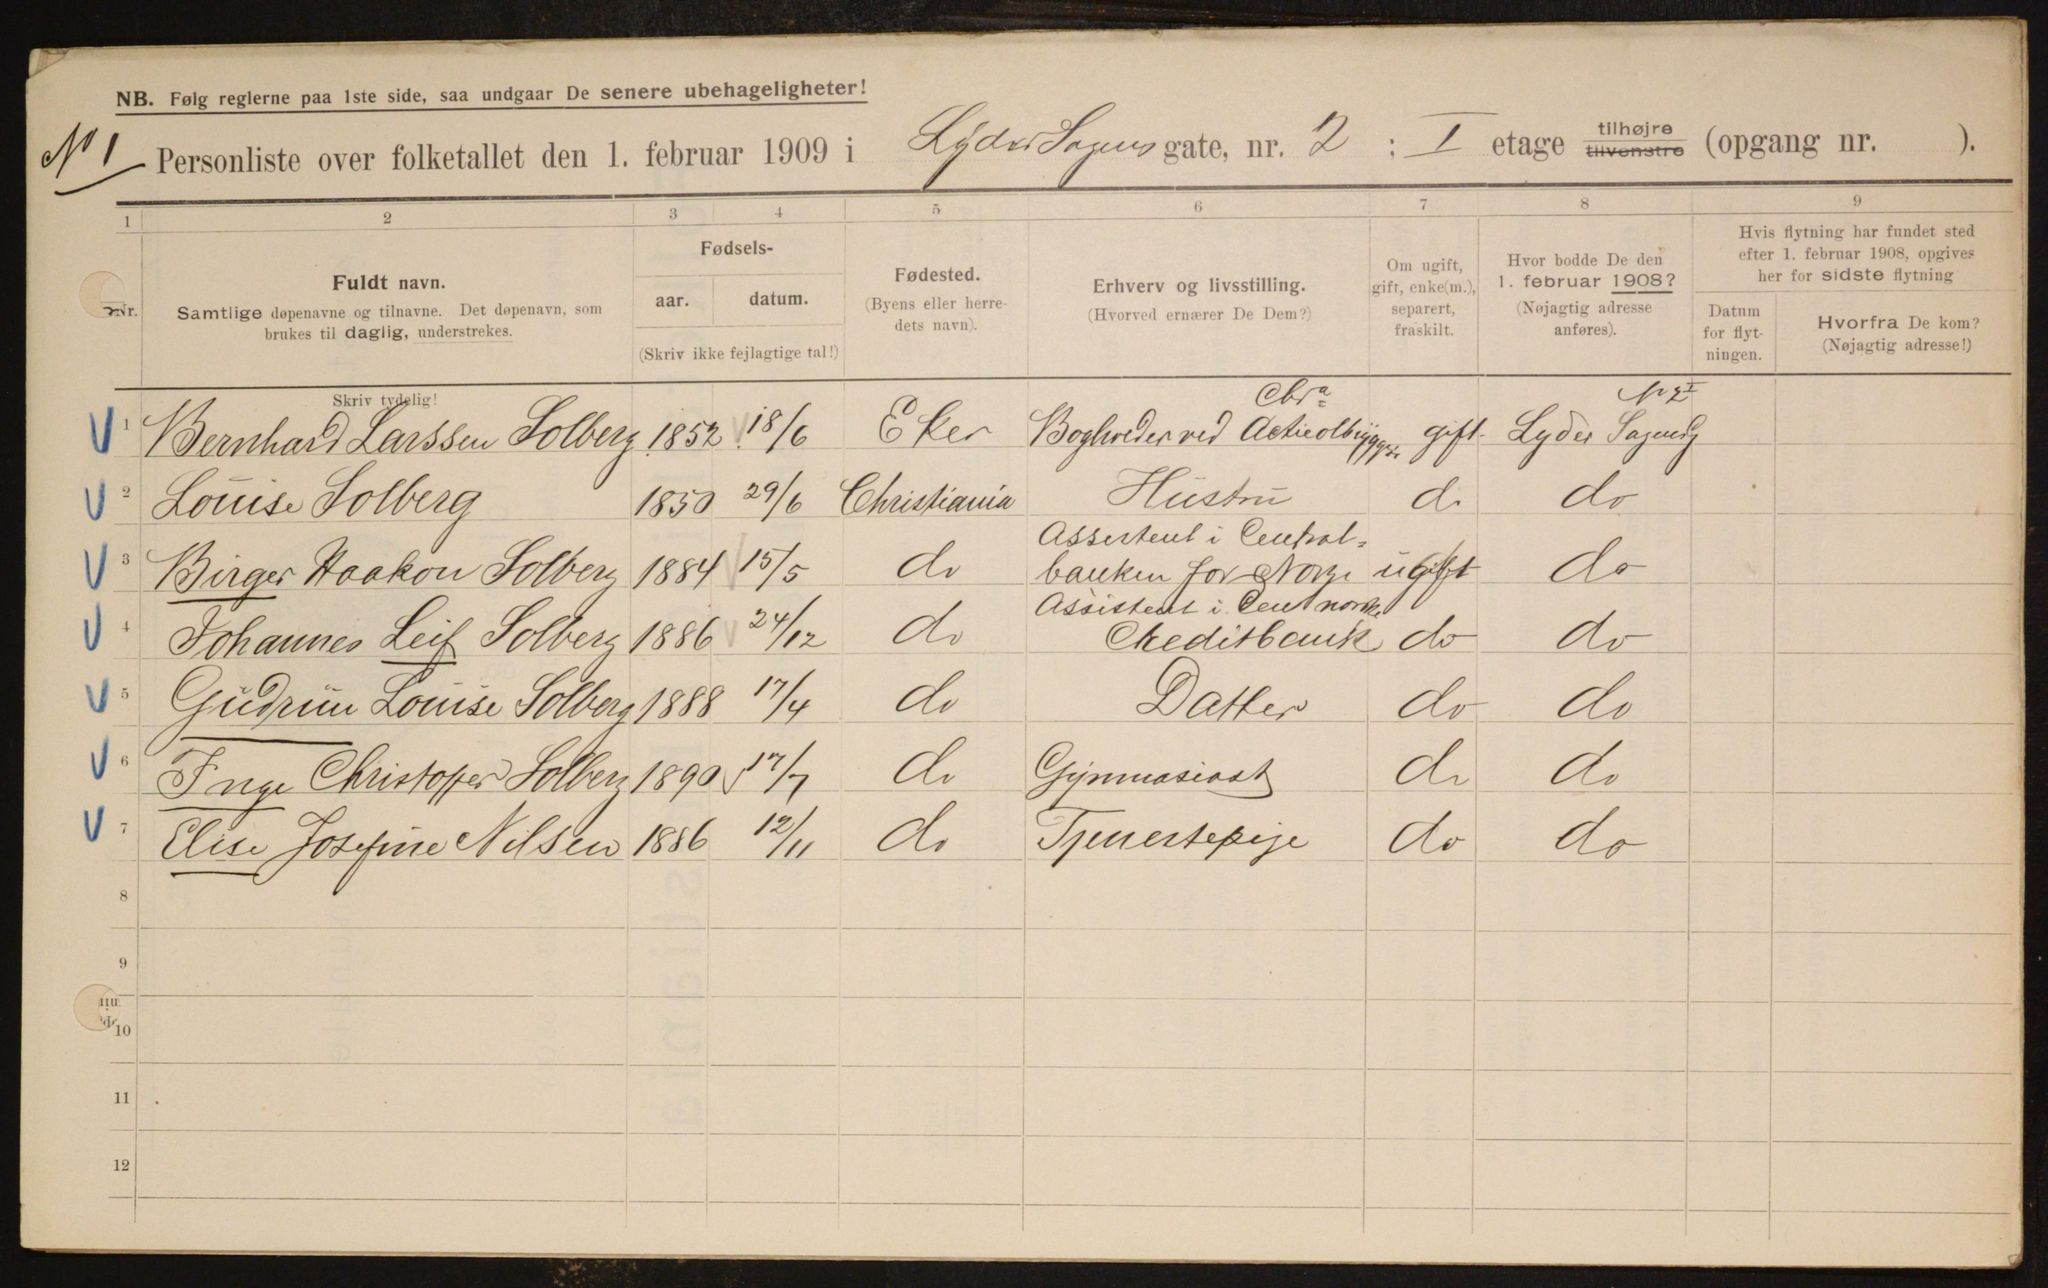 NB. Følg reglerne paa 1ste side, saa undgaar De senere ubehageligheter!
No 1
Personliste over folketallet den 1. februar 1909 i Lyder Sagens gate, nr. 2 ; I etage tilhøjre tilvenstre (opgang nr. ).
1 2 3 4 5 6 7 8 9
Nr.
Fuldt navn.
Samtlige døpenavne og tilnavne. Det døpenavn, som
brukes til daglig, understrekes.
Skriv tydelig!
Fødsels-
aar. datum.
(Skriv ikke fejlagtige tal!)
Fødested.
(Byens eller herre-
dets navn).
Erhverv og livsstilling.
(Hvorved ernærer De Dem?)
Om ugift,
gift, enke(m.),
separert,
fraskilt.
Hvor bodde De den
1. februar 1908?
(Nøjagtig adresse
anføres).
Hvis flytning har fundet sted
efter 1. februar 1908, opgives
her for sidste flytning
Datum
for flyt-
ningen.
Hvorfra De kom?
(Nøjagtig adresse!)
1 Bernhard Larssen Solberg 1852 18/6 Eker Bogholder ved Chra Actieølbryggr. gift Lyder Sagensg No 2 I
2 Louise Solberg 1850 29/6 Christiania Hustru do do
3 Birger Haakon Solberg 1884 15/5 do Assistent i Central=
banken for Norge ugift do
4 Johannes Leif Solberg 1886 24/12 do Assistent i Den norske
Creditbank do do
5 Gudrun Louise Solberg 1888 17/4 do Datter do do
6 Inge Christoffer Solberg 1890 17/7 do Gymnasiast do do
7 Elise Josefine Nilsen 1886 12/11 do Tjenestepige do do
8
9
10
11
12